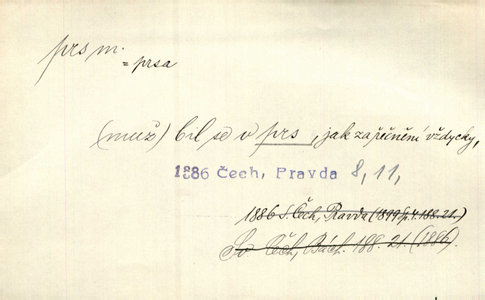 prs m.
= prsa
(muž) bil se v prs, jak zařečnění vždycky,
1886 Čech, Pravda 8, 11,
1886 S. Čech, Pravda (1899) p. 4. 188. 21.)
Sv. Čech, Bách. 188. 21. (1886).